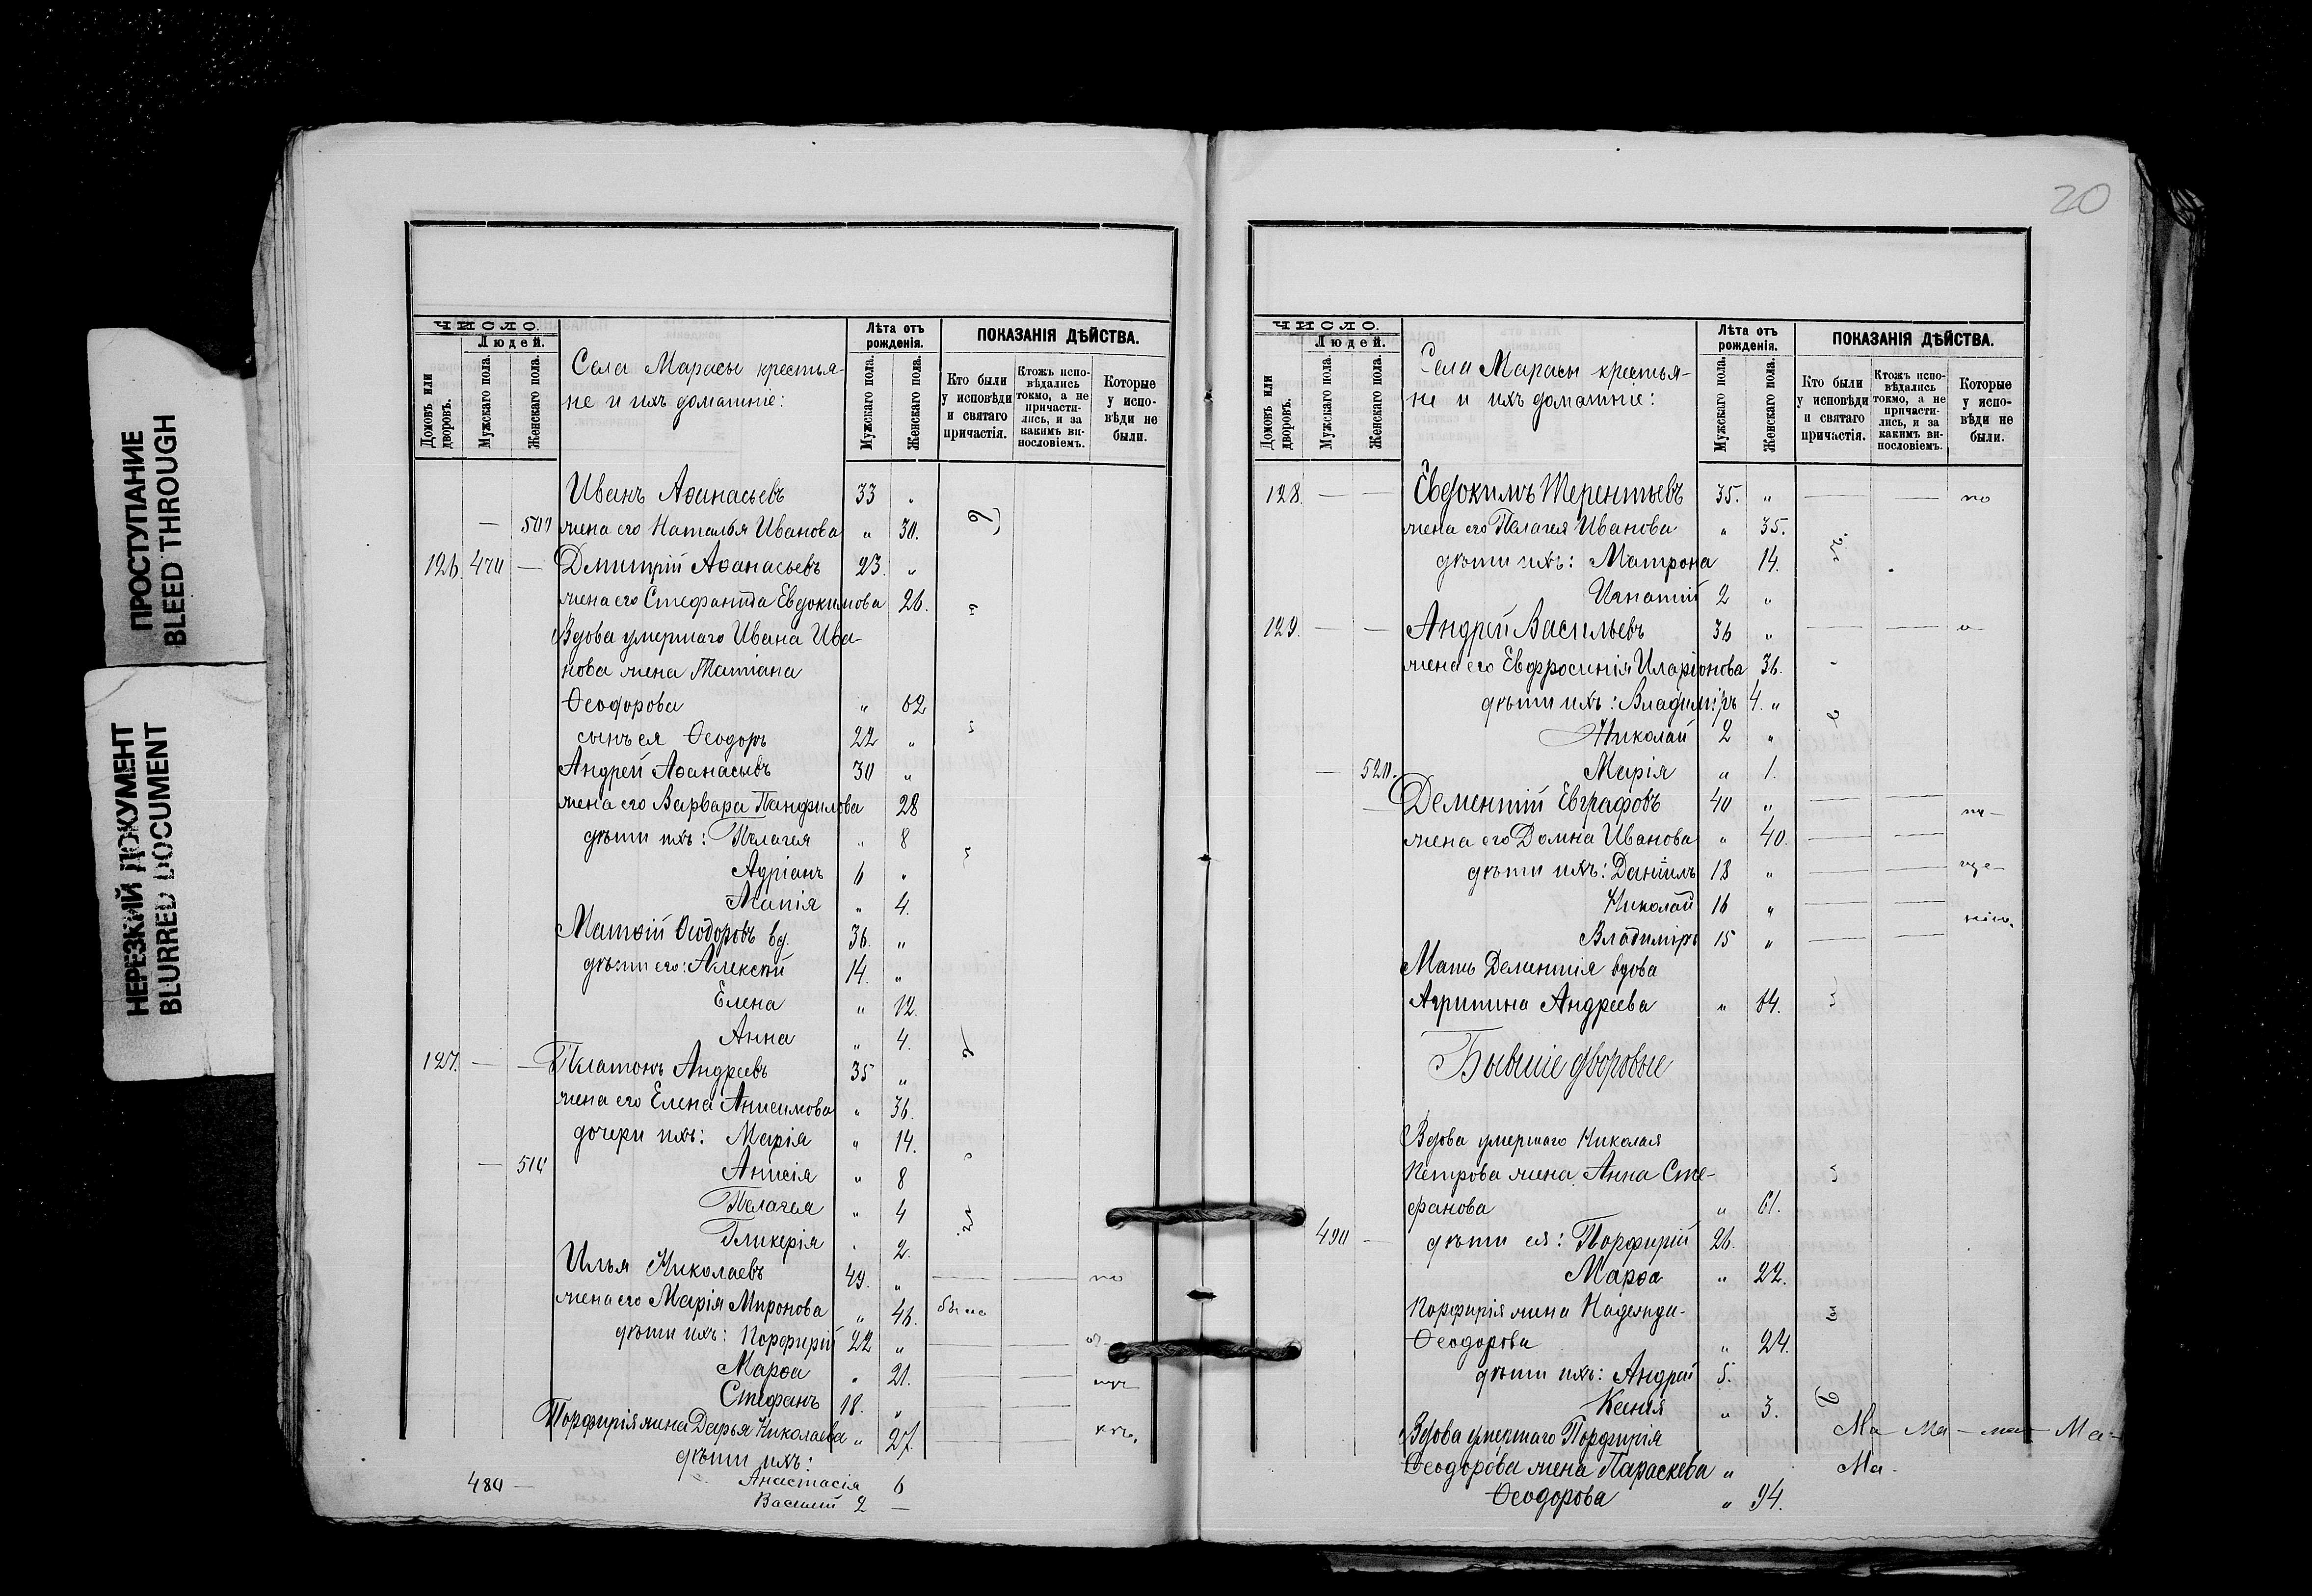 ПРОСТУПАНИЕ
BLEED THROUGH
НЕРЕЗКИЙ ДОКУМЕНТ
BLURRED DOCUMENT
ЧИСЛО.
Людей.
Домовъ или дворовъ.
Мужскаго пола.
Женскаго пола.
Села Марасы крестья-
не и ихъ домашніе:
Лѣта отъ рожденія.
Мужскаго пола.
Женскаго пола.
ПОКАЗАНІЯ ДѢЙСТВА.
Кто были у исповѣди и святаго причастія.
Ктожъ испо-вѣдались токмо, а не причасти-лись, и за какимъ ви-нословіемъ.
Которые у испо-вѣди не были.
Иванъ Аѳанасьевъ 33 „
— жена его Наталья Иванова „ 30.
126. 470 — Дмитрій Аѳанасьевъ 23. „
жена его Стефанида Евдокимова 26.
Вдова умершаго Ивана Ива-
нова жена Татіана
Ѳеодорова „ 62
сынъ ея Ѳеодоръ 22 „
Андрей Аѳанасьевъ 30 „
жена его Варвара Панфилова 28
дѣти ихъ: Пелагея „ 8
Адріанъ 6 „
Марія „ 4.
Матѳій Ѳеодоровъ вд. 36. „
дѣти его: Алексѣй 14. „
Елена „ 12.
Анна „ 4.
127. — — Платонъ Андреевъ 35 „
жена его Елена Анисимова „ 36.
дочери ихъ: Марія „ 14.
— 510 Анисія „ 8
Пелагея „ 4
Гликерія „ 2.
Илья Николаевъ 49. „ — — не
жена его Марія Миронова „ 46. было
дѣти ихъ: Порфирій 22 „ — —
Марѳа „ 21. — —
Стефанъ 18. „ — —
Порфирія жена Дарья Николаева „ 27.
дѣти ихъ:
480 — Анастасія 6
Василій 2 —
20
ЧИСЛО.
Людей.
Домовъ или дворовъ.
Мужскаго пола.
Женскаго пола.
Села Марасы крестья-
не и ихъ домашніе:
Лѣта отъ рожденія.
Мужскаго пола.
Женскаго пола.
ПОКАЗАНІЯ ДѢЙСТВА.
Кто были у исповѣди и святаго причастія.
Ктожъ испо-вѣдались токмо, а не причасти-лись, и за какимъ ви-нословіемъ.
Которые у испо-вѣди не были.
128. — — Евдокимъ Терентьевъ 35. „ — — по
жена его Пелагея Иванова „ 35.
дѣти ихъ: Матрона 14.
Игнатій 2 „
129. — — Андрей Васильевъ 36 „ — —
жена его Евфросинія Иларіонова 36.
дѣти ихъ: Владиміръ 4. „
Николай 2 „
— 520. Марія „ 1.
Дементій Евграфовъ 40 „ — —
жена его Домна Иванова „ 40. — —
дѣти ихъ: Даніилъ 18 „ — —
Николай 16 „ — —
Владиміръ 15 „ — —
Мать Дементія вдова
Агрипина Андреева „ 64.
Бывшіе дворовые
Вдова умершаго Николая
Петрова жена Анна Сте-
фанова „ 61.
490 — дѣти ея: Порфирій 26.
Марѳа „ 22.
Порфирія жена Надежда
Ѳеодорова „ 24.
дѣти ихъ: Андрей 5.
Ксенія „ 3.
Вдова умершаго Порфирія
Ма — Ма — ма — Ма —
Ѳеодорова жена Параскева „
Ма -
Ѳеодорова „ 94.